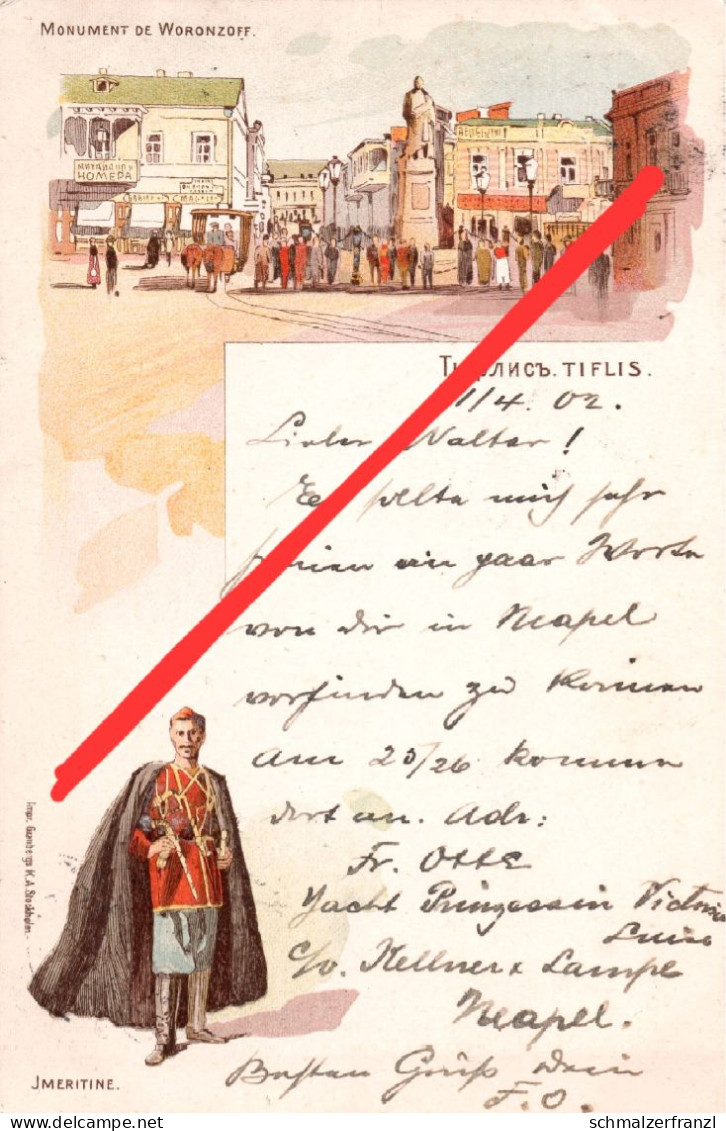 MONUMENT DE WORONZOFF.
НОМЕРА
ТИФЛИСЪ. TIFLIS.
1/4. 02.
Lieber Walter!
Es sollte mich sehr
freuen ein paar Worte
von dir in Neapel
vorfinden zu können
Am 25/26 kommen
dort an. Adr:
Fr. Otte
Yacht Prinzessin Victoria
Luise
c/o. Kellner & Lampe
Neapel.
Besten Gruß dein
F. O.
JMERITINE.
delcampe.net
schmalzerfranzl